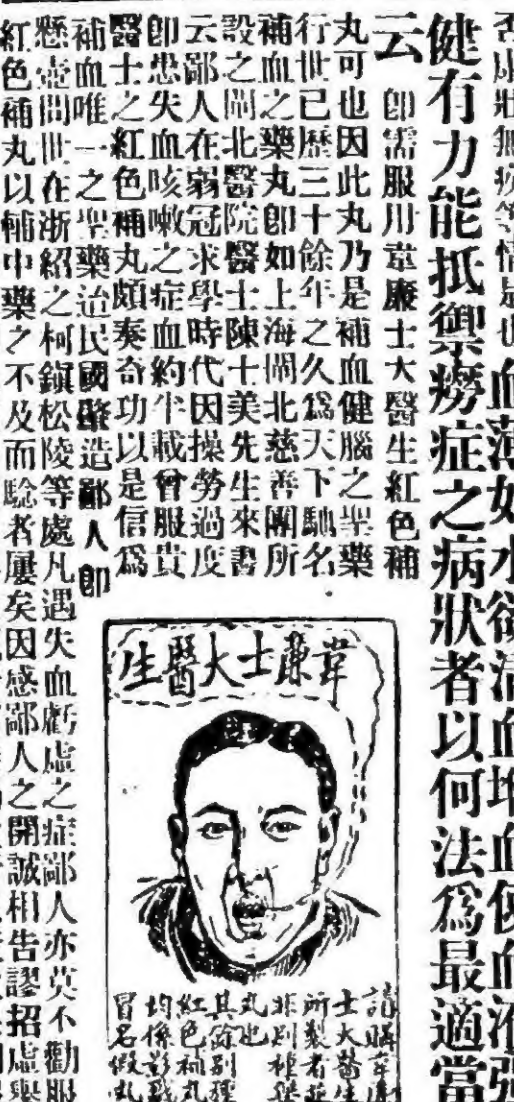 血薄如水欲清血增血使血液強
健有力能抵禦癆症之病狀者以何法爲最適當
云即需服用韋廉士大醫生紅色補
丸可也因此丸乃是補血健腦之聖藥
行世已歷三十餘年之久爲天下馳名
補血之藥丸即如上海閘北慈善團所
設之閘北醫院醫士陳十美先生來書
云鄙人在弱冠求學時代因操勞過度
即患失血咳嗽之症血約半載曾服貴
醫士之紅色補丸頗奏奇功以是信爲
補血唯一之聖藥迨民國肇造鄙人即
懸壺問世在浙紹之柯鎭松陵等處凡遇失血虧虛之症鄙人亦莫不勸服
紅色補丸以輔中藥之不及而驗者屢矣因感鄙人之開誠相告謬招虛譽
韋廉士大醫生
請購韋廉
士大醫生
所製者並
非別種藥
丸也
其餘別種
紅色補丸
均係影戤
冒名假丸